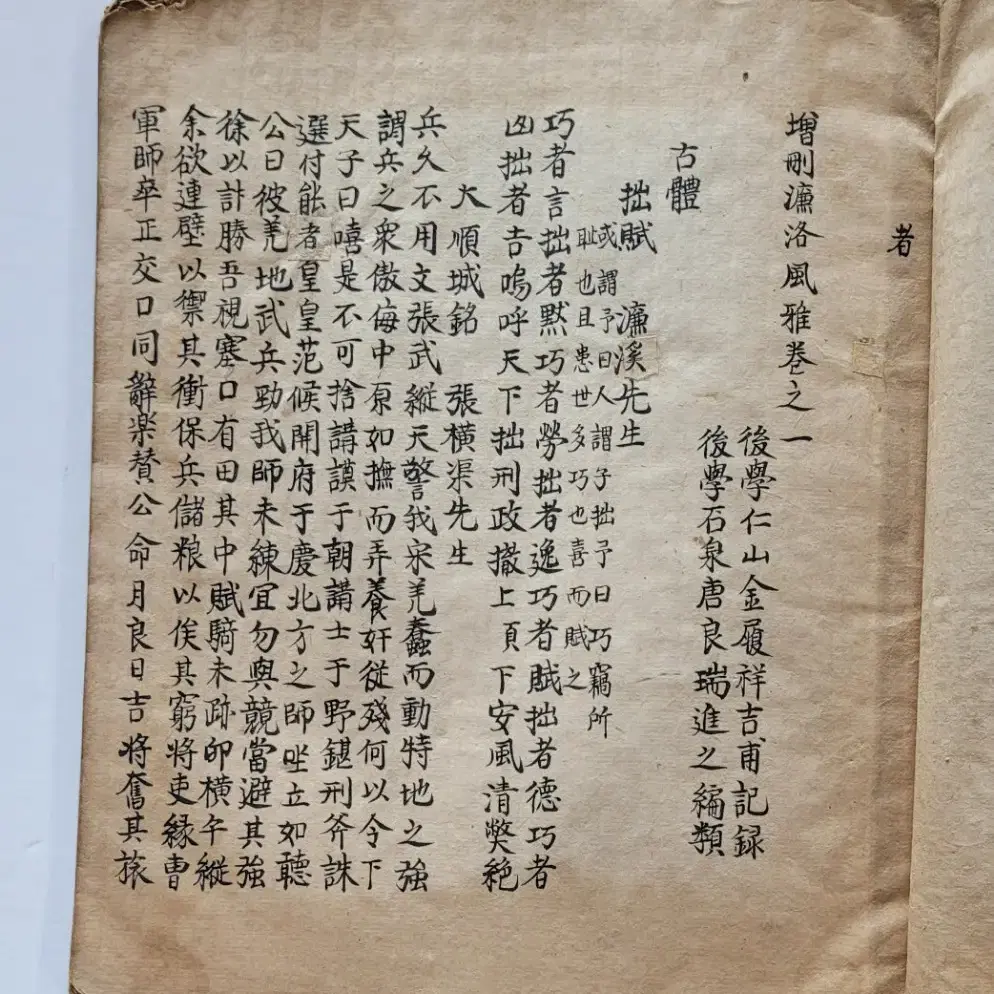 者
增刪濂洛風雅卷之一
後學仁山金履祥吉甫記録
後學石泉唐良瑞進之編類
古體
拙賦 濂溪先生
或謂予曰人謂子拙予曰巧竊所
耻也且患世多巧也喜而賦之
巧者言拙者黙巧者勞拙者逸巧者賊拙者德巧者
凶拙者吉嗚呼天下拙刑政撤上頁下安風清獘絕
大順城銘 張橫渠先生
兵久不用文張武縱天警我宋羌蠢而動特地之強
謂兵之衆傲侮中原如撫而弄養奸從殘何以令下
天子曰嘻是不可捨講謨于朝講士于野鍖刑斧誅
選付能者皇皇范候開府于慶北方之師坐立如聽
公曰彼羌地武兵勁我師未練宜勿與競當避其強
徐以計勝吾視塞口有田其中賦騎未跡卯橫午縱
余欲連壁以禦其衝保兵儲粮以俟其窮將吏緣曹
軍師卒正交口同辭樂賛公命月良日吉将奮其旅